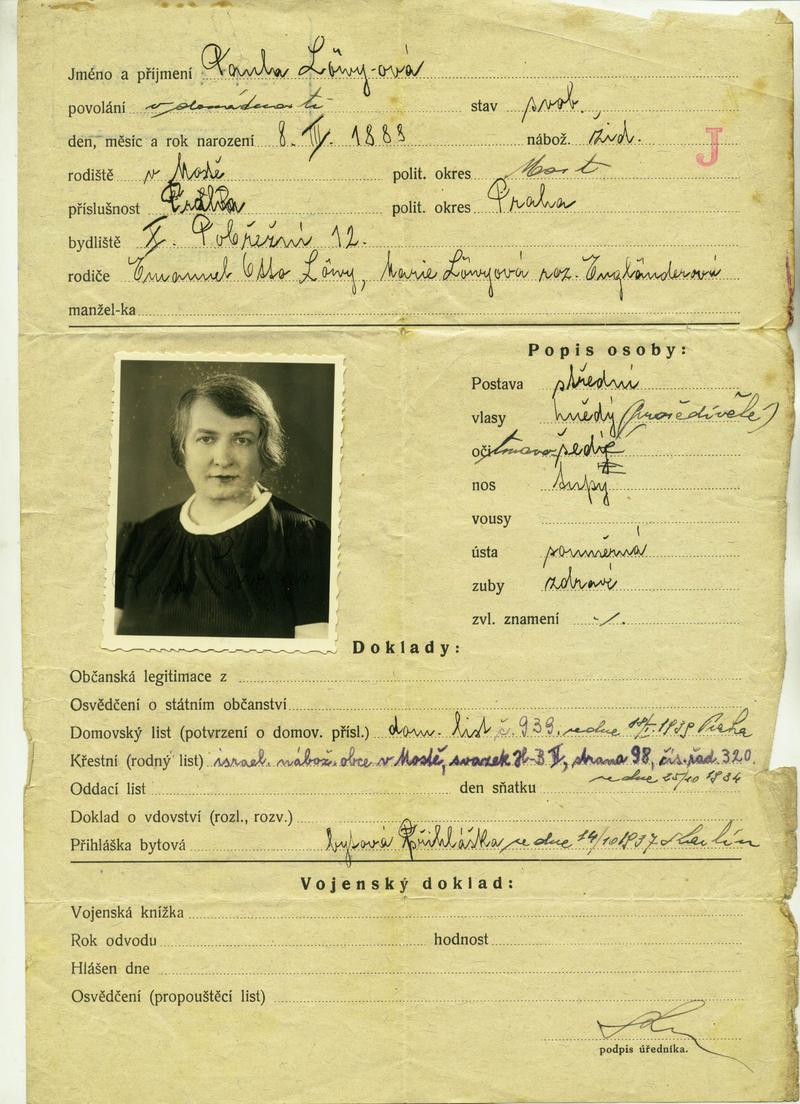 Jméno a příjmení Paula Löwy-ová
povolání v domácnosti stav svob.
den, měsíc a rok narození 8. III. 1888 nábož. žid.
J
rodiště v Mostě polit. okres Most
příslušnost Praha polit. okres Praha
bydliště X. Pobřežní 12.
rodiče Emanuel Otto Löwy, Marie Löwyová roz. Engländerová
manžel-ka
Popis osoby:
Postava střední
vlasy hnědý (prošedivělé)
oči tmavo šedé
nos tupý
vousy
ústa souměrná
zuby zdravé
zvl. znamení ./.
Doklady:
Občanská legitimace z
Osvědčení o státním občanství
Domovský list (potvrzení o domov. přísl.) dom. list č. 939. ze dne 1939 Praha
Křestní (rodný list) israel. nábož. obce v Mostě, svazek H-B V, strana 98, čís. řad. 320.
ze dne 25/10 1934
Oddací list den sňatku
Doklad o vdovství (rozl., rozv.)
Přihláška bytová bytová Přihláška ze dne 14/10 1937 Karlín
Vojenský doklad:
Vojenská knížka
Rok odvodu hodnost
Hlášen dne
Osvědčení (propouštěcí list)
podpis úředníka.